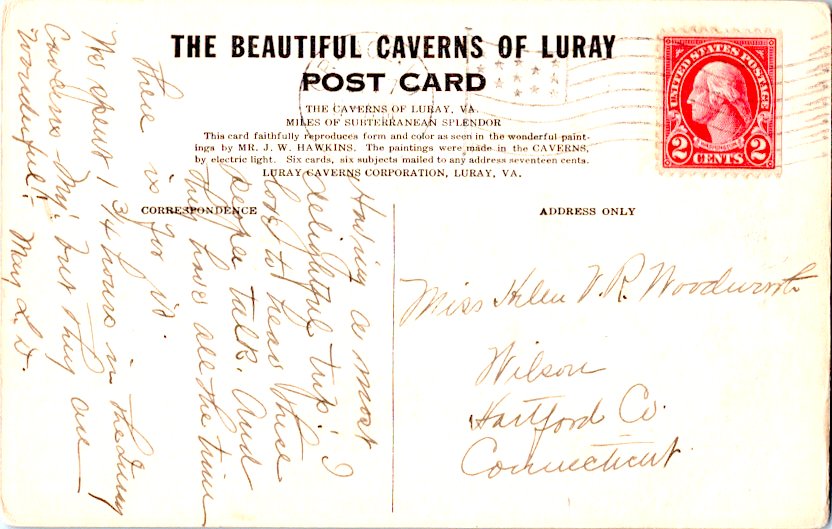 THE BEAUTIFUL CAVERNS OF LURAY
POST CARD
THE CAVERNS OF LURAY, VA.
MILES OF SUBTERRANEAN SPLENDOR
This card faithfully reproduces form and color as seen in the wonderful paint-
ings by MR. J. W. HAWKINS. The paintings were made in the CAVERNS,
by electric light. Six cards, six subjects mailed to any address seventeen cents.
LURAY CAVERNS CORPORATION, LURAY, VA.
UNITED STATES POSTAGE
WASHINGTON
2 CENTS 2
CORRESPONDENCE
ADDRESS ONLY
Having a most
delightful trip! I
love to hear these
people talk. And
they have all the time
there is for it.
We spent 1 3/4 hours in the
Caverns. My! but they are
wonderful! Mary L. D.
Miss Helen V. R. Woodworth
Wilson
Hartford Co.
Connecticut